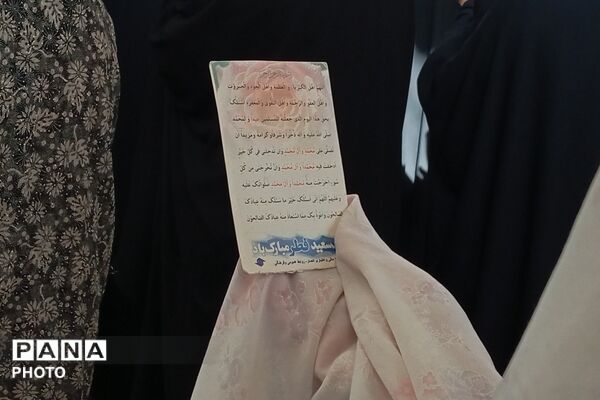 اللهم اهل الکبریاء و العظمة واهل الجود والجبروت
واهل العفو والرحمة واهل التقوی والمغفرة اسئلک
بحق هذا الیوم الذی جعلته للمسلمین عیدا ولمحمد
صلی الله علیه و آله ذخرا وشرفا وکرامة ومزیدا ان
تصلی علی محمد وآل محمد وان تدخلنی فی کل خیر
ادخلت فیه محمدا وآل محمد وان تخرجنی من کل
سوء اخرجت منه محمدا وآل محمد صلواتک علیه
وعلیهم اللهم انی اسئلک خیر ما سئلک منه عبادک
الصالحون واعوذ بک مما استعاذ منه عبادک الصالحون
سعید فطر مبارک باد
روابط عمومی و فرهنگی
PANA
PHOTO